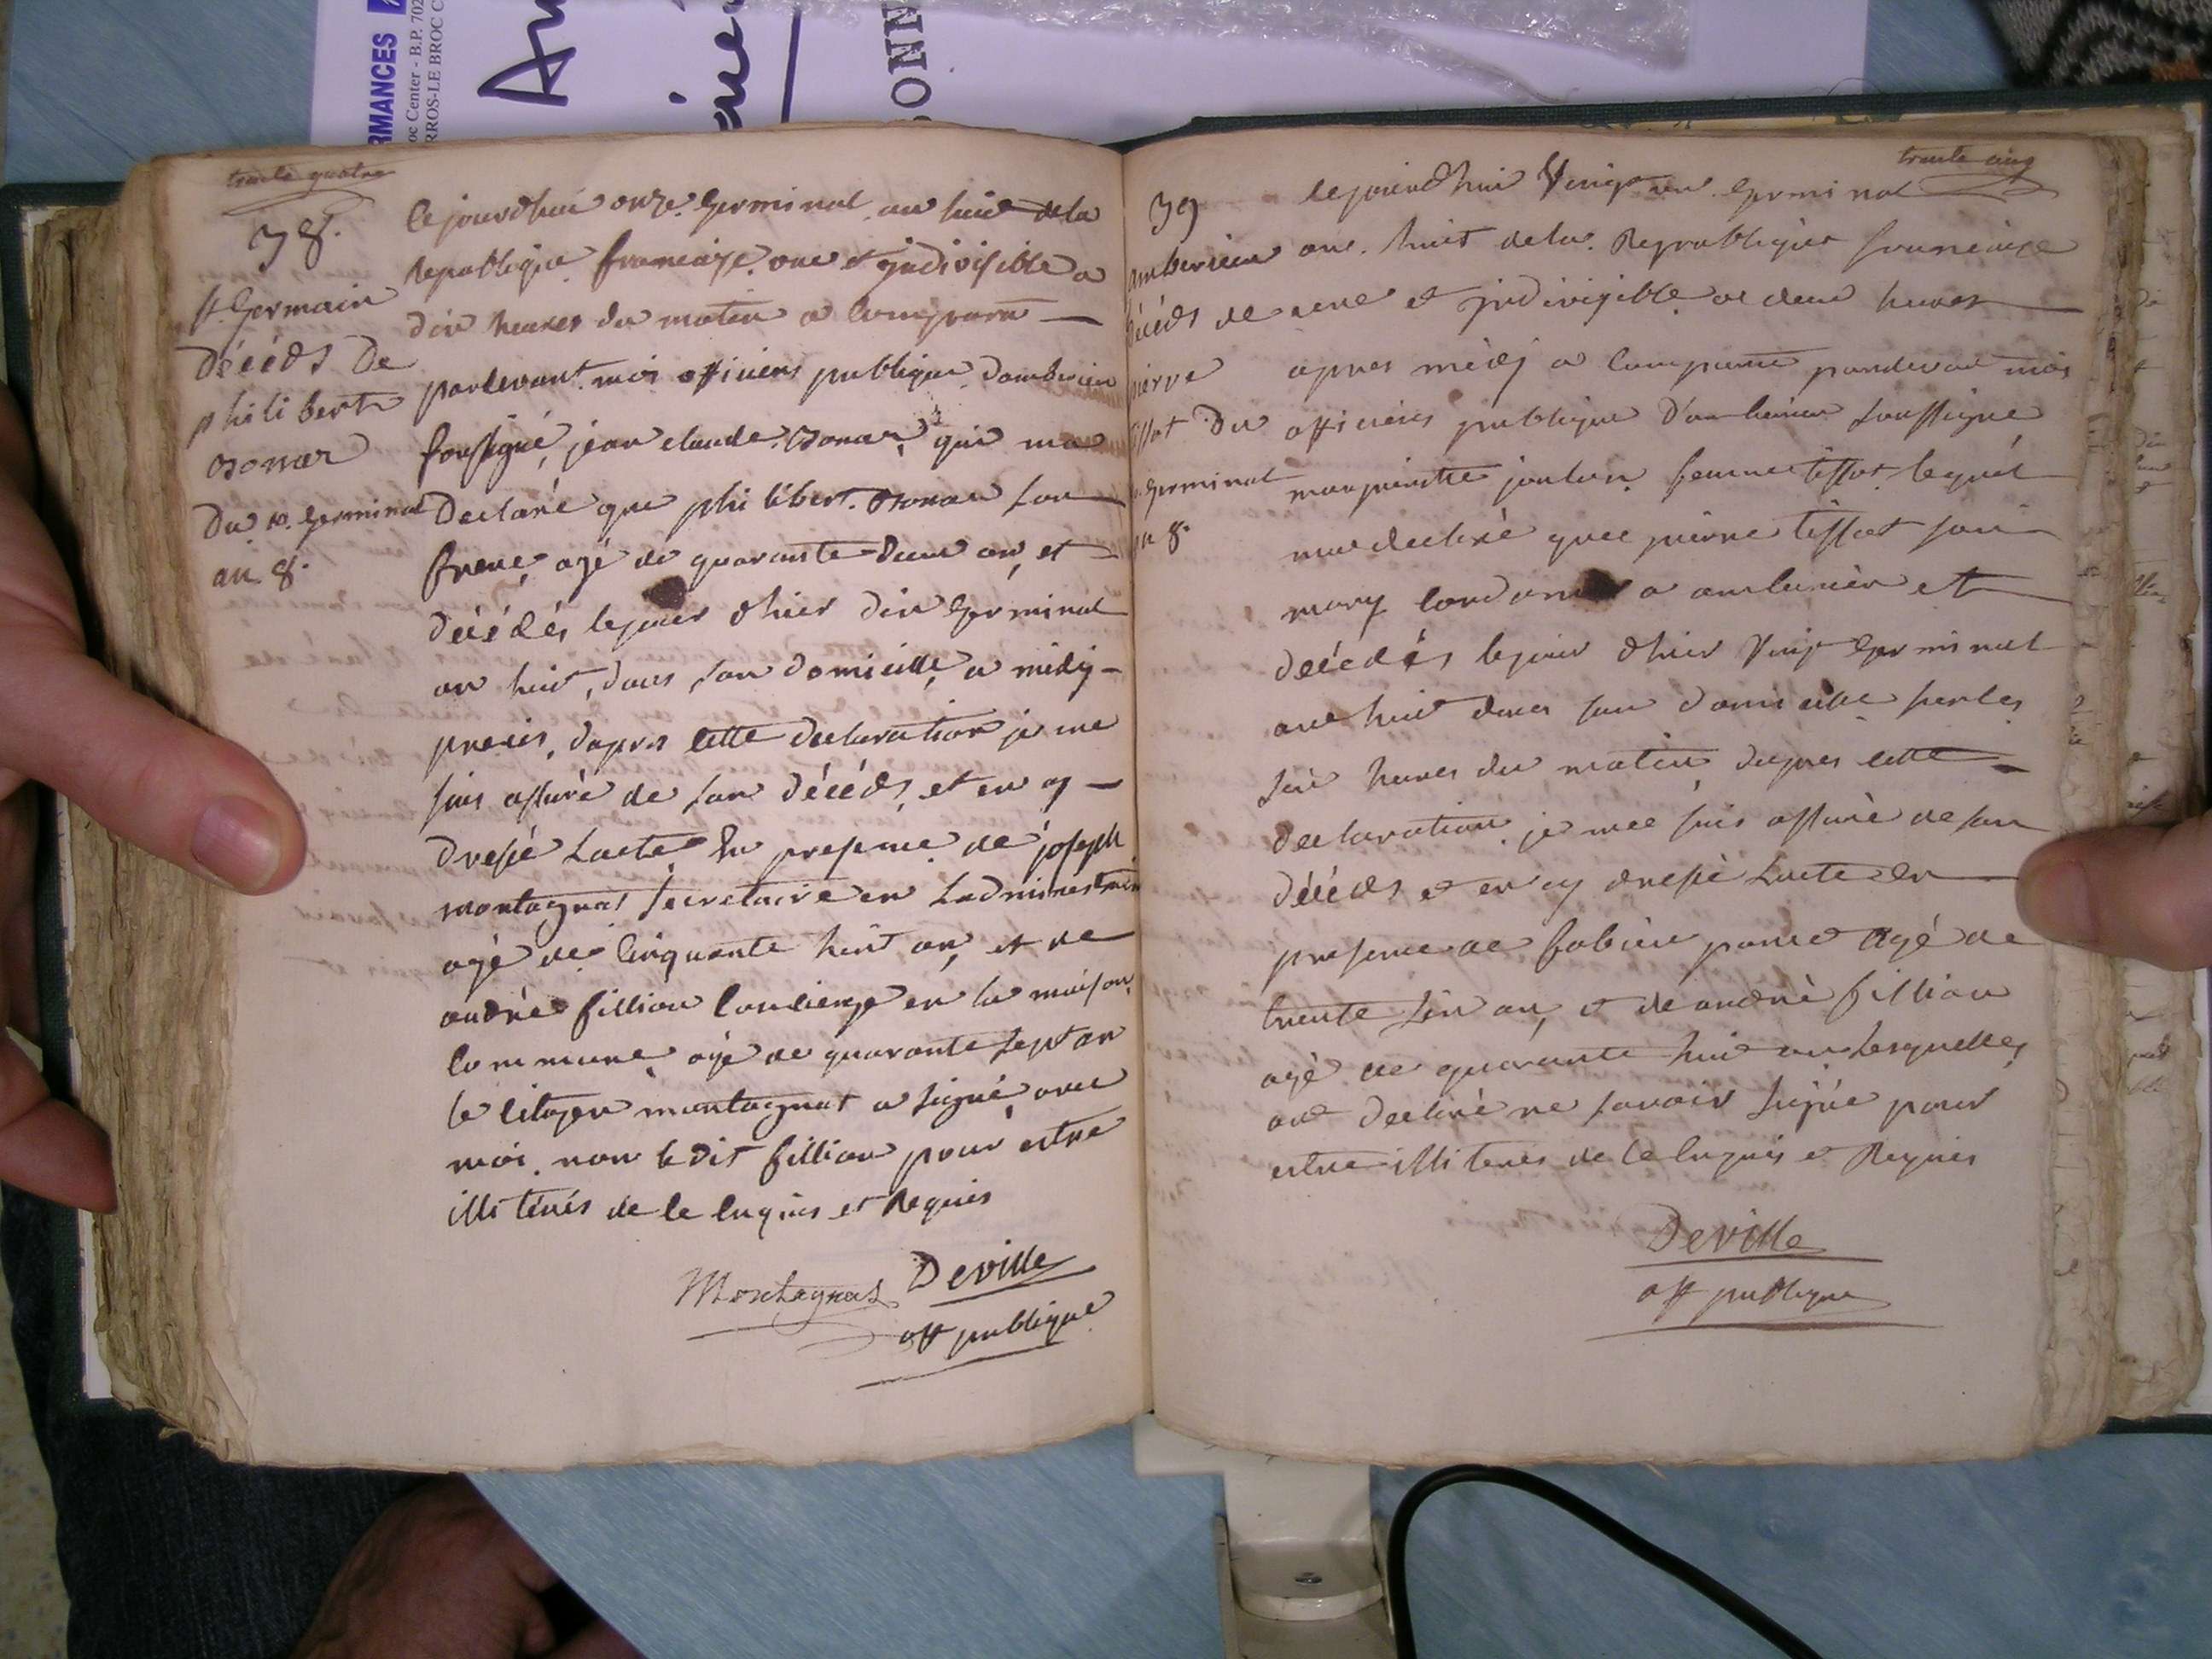 RMANCES
oc Center - B.P. 702
RROS-LE BROC C
ONN
trente quatre
38.
st Germain
décéds de
philibert
Bonar
du 10. Germinal
an 8.
Cejourdhui onze Germinal an huit de la
Republique francaize une et jndivisible a
dix heures du matin a comparu
pardevant moi officiers publique damberieu
sousigné, jean claude Bonar, qui ma
declaré que philibert Bonar son
frere, agé de quarante deux an, et
décédés le jour dhier dix Germinal
an huit, dans son domicille, a midy
precis, dapres cette declaration je me
suis assuré de son décéds, et en ay
dressé Lacte En presence de joseph
montagnat secretaire en Ladministration
agé de Cinquante huit an, et de
andré fillion concierge en la maison
Commune agé de quarante sept an
le citoyen montagnat a signé avec
moi non ledit fillion pour estre
illiterés de ce Enquis et Requis
Montagnat Deville
off publique
trente cinq
39
amberieu
décéds de
pierre
tissot du
Germinal
an 8.
Cejourdhui Vingt un Germinal
ane huit de la Republique francaize
une et jndivizible a deux heures
apres midj a comparue pardevant moi
officiers publique d'amberieu soussigne
marguerite femme tissot lequel
ma declaré que pierre tissot son
mary a amberieu et
décédés le jour dhier Vingt Germinal
ane huit dans son domicille sur les
six heures du matin, dapres cette
declaration je me suis assuré de son
décéds et en ay dressé Lacte En
presence de fabien agé de
trente six an, et de andré fillion
agé de quarante huit an lesquelles
ont declaré ne savoir signé pour
estre illiterés de ce Enquis et Requis
Deville
off publique